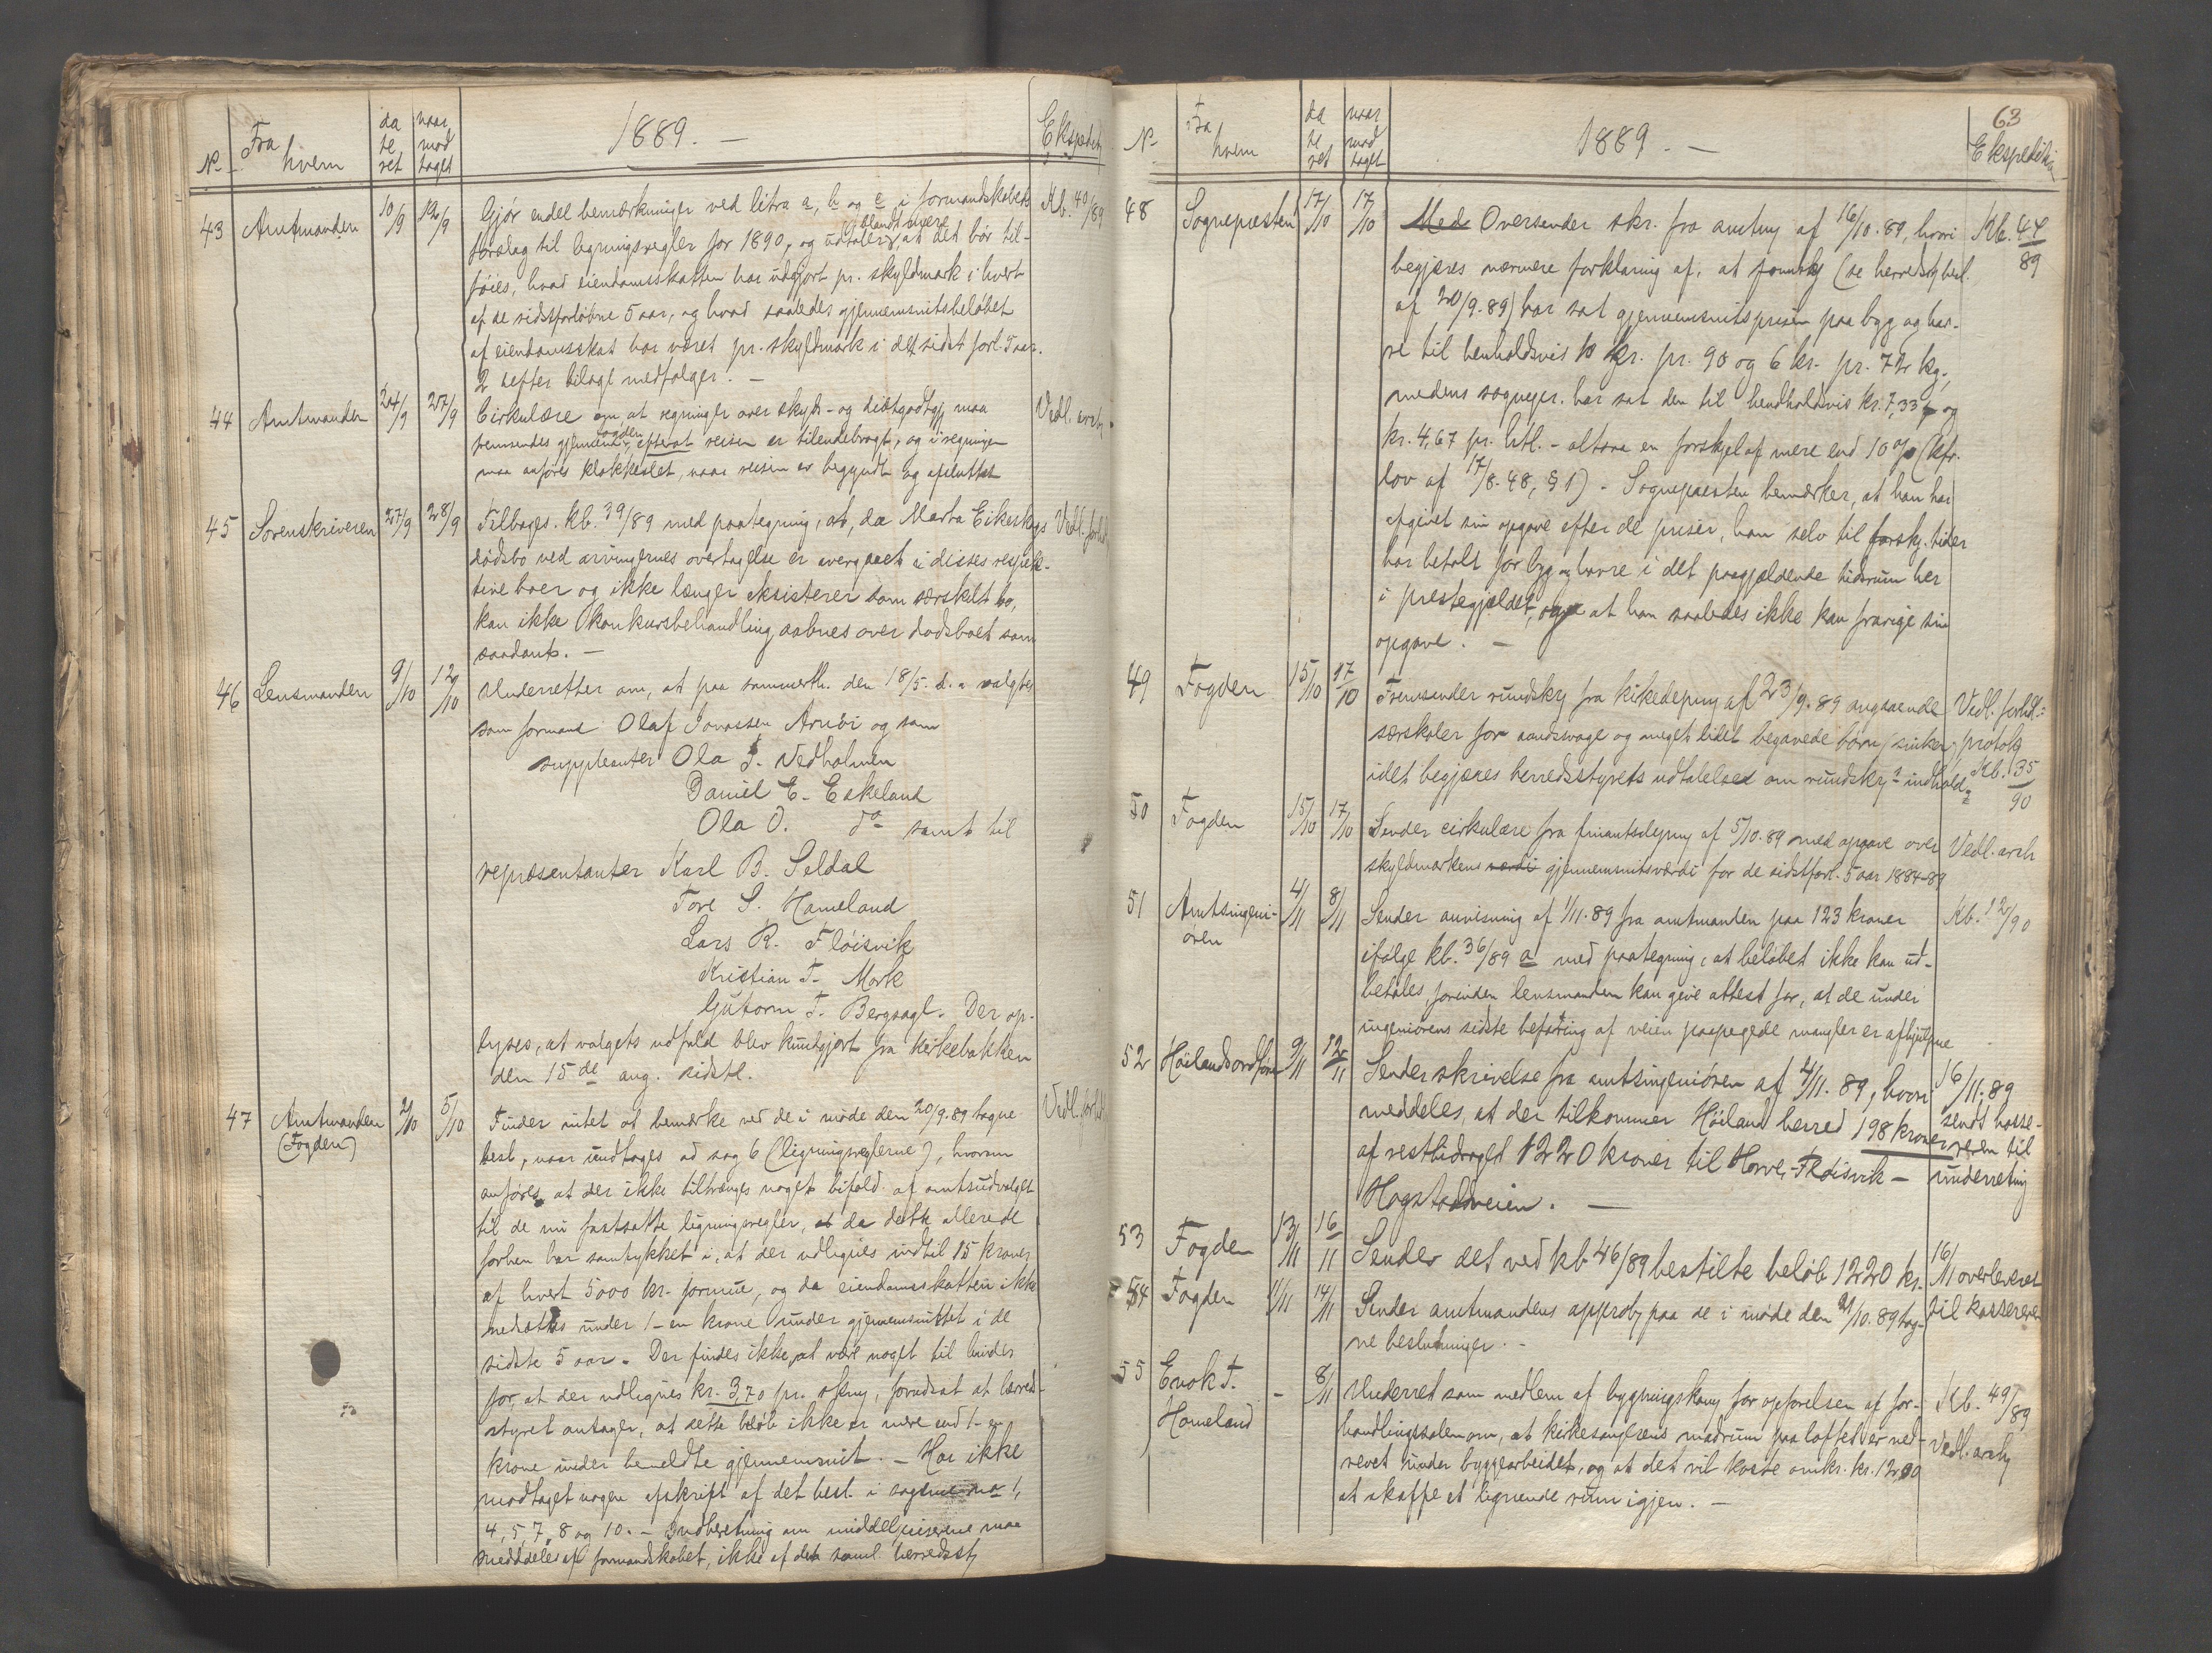 No Fra hvem da te ret naar mod taget 1889. — Ekspedit.
43 Amtmanden 10/9 12/9 Gjør endel bemærkninger ved litra a, b og c i formandskabets Kb. 40/89
forslag til ligningsregler for 1890, og udtaler blandt mere, at det bør til-
føies, hvad eiendomsskatten har udgjort pr. skyldmark i hvert
af de sidstforløbne 5 aar, og hvad saaledes gjennemsnitsbeløbet
af eiendomsskat har været pr. skyldmark i det sidst forl. 5 aar.
2 hefter bilage medfølger. —
44 Amtmanden 24/9 27/9 Cirkulære om at regninger over skyds- og diætgodtgj. maa Vedl. arch.
fremsendes gjennem fogden, efterat reisen er tilendebragt, og i regningen
maa anføres klokkeslet, naar reisen er begyndt og afsluttet
45 Sorenskriveren 27/9 28/9 Tilbages. kb. 39/89 med paategning, at, da Marta Eikeskogs Vedl. forh.
dødsbo ved arvingernes overtagelse er overgaaet i disses respek-
tive boer og ikke længer eksisterer som særskilt bo,
kan ikke konkursbehandling aabnes over dødsboet som
saadant. —
46 Lensmanden 9/10 12/10 Underretter om, at paa sammenth. den 18/5. d. a valgtes
som formand Olaf Jonassen Arnøi og som
suppleanter Ola J. Vedholmen
Daniel E. Eskeland
Ola O. do samt til
repræsentanter Karl B. Seldal
Tore S. Hameland
Lars R. Fløisvik
Kristian T. Mork
Gutorm T. Bergsagl. Der op-
lyses, at valgets udfald blev kundgjort fra kirkebakken
den 15de aug. sidstl.
47 Amtmanden (Fogden) 2/10 5/10 Finder intet at bemærke ved de i møde den 20/9.89 tagne Vedl. forh.
besl., naar undtages ad sag 6 (ligningsreglerne), hvorom
anføres at der ikke tiltrænges noget bifald af amtsudvalget
til de nu fastsatte ligningsregler, at da dette allerede
forhen har samtykket i, at der udlignes indtil 15 kroner
af hvert 5000 kr. formue, og da eiendomsskatten ikke
nedsættes under 1 - en krone under gjennemsnittet i de
sidste 5 aar. Der findes ikke at være noget til hinder
for, at der udlignes kr. 3,70 pr. skm, forudsat at herreds-
styret antager, at dette beløb ikke er mere end 1 - en
krone under bemeldte gjennemsnit. — Har ikke
modtaget nogen afskrift af det besl. i sagerne no 1,
4, 5, 7, 8 og 10. — Indberetning om middelpriserne maa
meddeles af formandskabet, ikke af det saml. herredsst.
63
No Fra hvem da te ret naar mod taget 1889. — Ekspedition
48 Sognepræsten 17/10 17/10 Med Oversender skr. fra amtm af 16/10.89, hvori Kb. 44/89
begjæres nærmere forklaring af, at formsk (se herredst. besl.
af 20/9.89) har sat gjennemsnitsprisen paa byg og hav-
re til henholdsvis 10 kr. pr. 90 og 6 kr. pr. 72 kg.,
medens sognepr. har sat den til hendholdsvis kr. 7,33 og
kr. 4,67 pr. htl. - altsaa en forskjel af mere end 10 % (kfr.
lov af 17/8.48, § 1). Sognepræsten bemærker, at han har
afgivet sin opgave efter de priser, han selv til forskj. tider
har betalt for byg og havre i det paagjældende tidsrum her
i prestegjældet, og at han saaledes ikke kan fravige sin
opgave. —
49 Fogden 15/10 17/10 Fremsender rundskr fra kirkedepm af 23/9.89 angaaende Vedl. forhdl.
særskoler for aandssvage og meget lidet begavede børn (sinker) protok
idet begjæres herredsstyrets udtalelse om rundskr's indhold Kb. 35/90
50 Fogden 15/10 17/10 Sender cirkulære fra finantsdepm af 5/10.89 med opgave over Vedl. arch
skyldmarkens værdi gjennemsnitsværdi for de sidstforl. 5 aar 1884-89
51 Amtsingeni- øren 4/11 8/11 Sender anvisning af 1/11.89 fra amtmanden paa 123 kroner Kb. 12/90
ifølge kb. 36/89 a med paategning, at beløbet ikke kan ud-
betales, forinden lensmanden kan give attest for, at de under
ingeniørens sidste befaring af veien paapegede mangler er afhjulpne
52 Høilands ordfører 9/11 12/11 Sender skrivelse fra amtsingeniøren af 4/11.89, hvori 16/11.89
meddeles, at der tilkommer Høiland herred 198 kroner sendt kasse-
af restbidraget 1220 kroner til Horve-Fløisvik — reren til
Hogstadveien. — underretning
53 Fogden 13/11 16/11 Sender det ved kb 46/89 bestilte beløb 1220 kr. 16/11 overleveret
54 Fogden 11/11 14/11 Sender amtmandens approb. paa de i møde den 21/10.89 tag- til kassereren
ne beslutninger. —
55 Enok T. Hameland - 8/11 Underret. som medlem af bygningskom for opførelsen af for- Kb. 49/89
handlingssalen om, at kirkesangerens madrum paa loftet er ned- Vedl. arch
revet under byggearbeidet, og at det vil koste omkr. kr. 12,00
at skaffe et lignende rum igjen. —